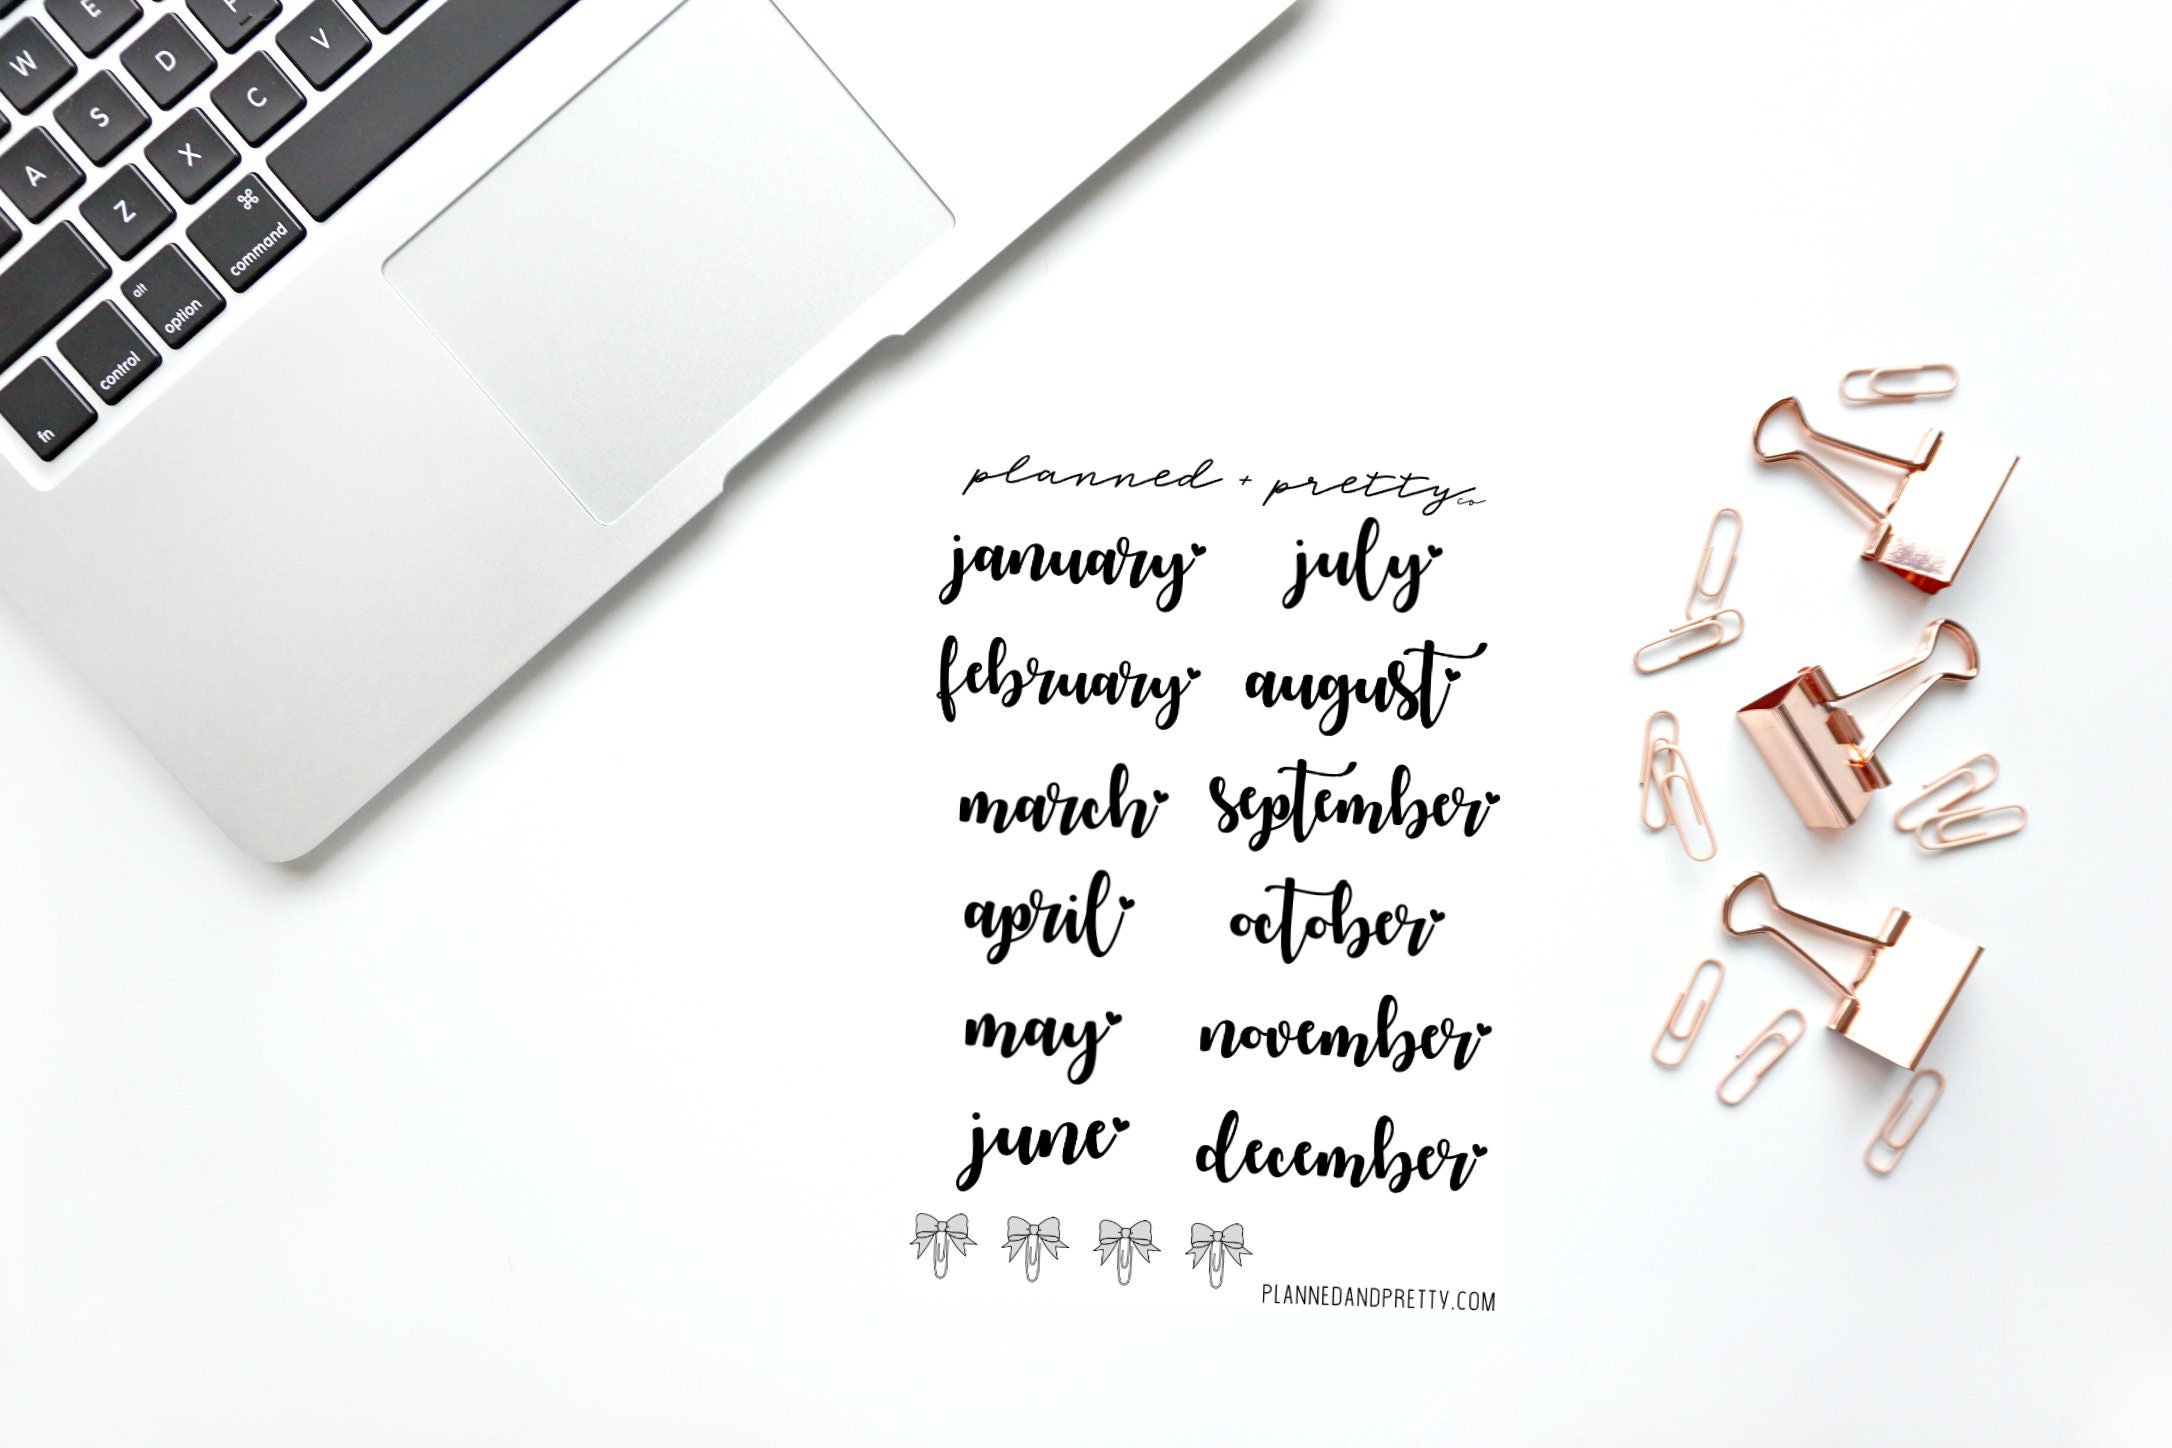 W E F
S D V
A X C
Z ⌘
command
alt
option
control
fn
planned + pretty co
january july
february august
march september
april october
may november
june december
PLANNEDANDPRETTY.COM